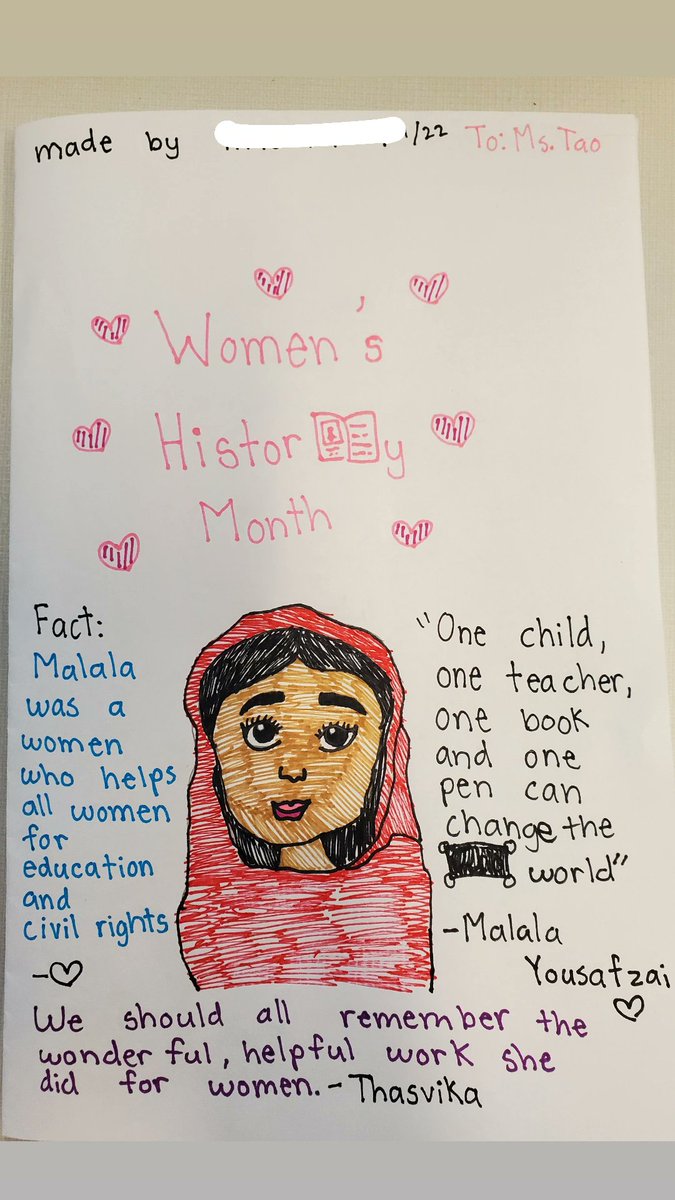 made by /22 To: Ms. Tao
Women's
History
Month
Fact:
Malala
was a
women
who helps
all women
for
education
and
civil rights
"One child,
one teacher,
one book
and one
pen can
change the
world"
-Malala
Yousafzai
We should all remember the
wonderful, helpful work she
did for women. - Thasvika